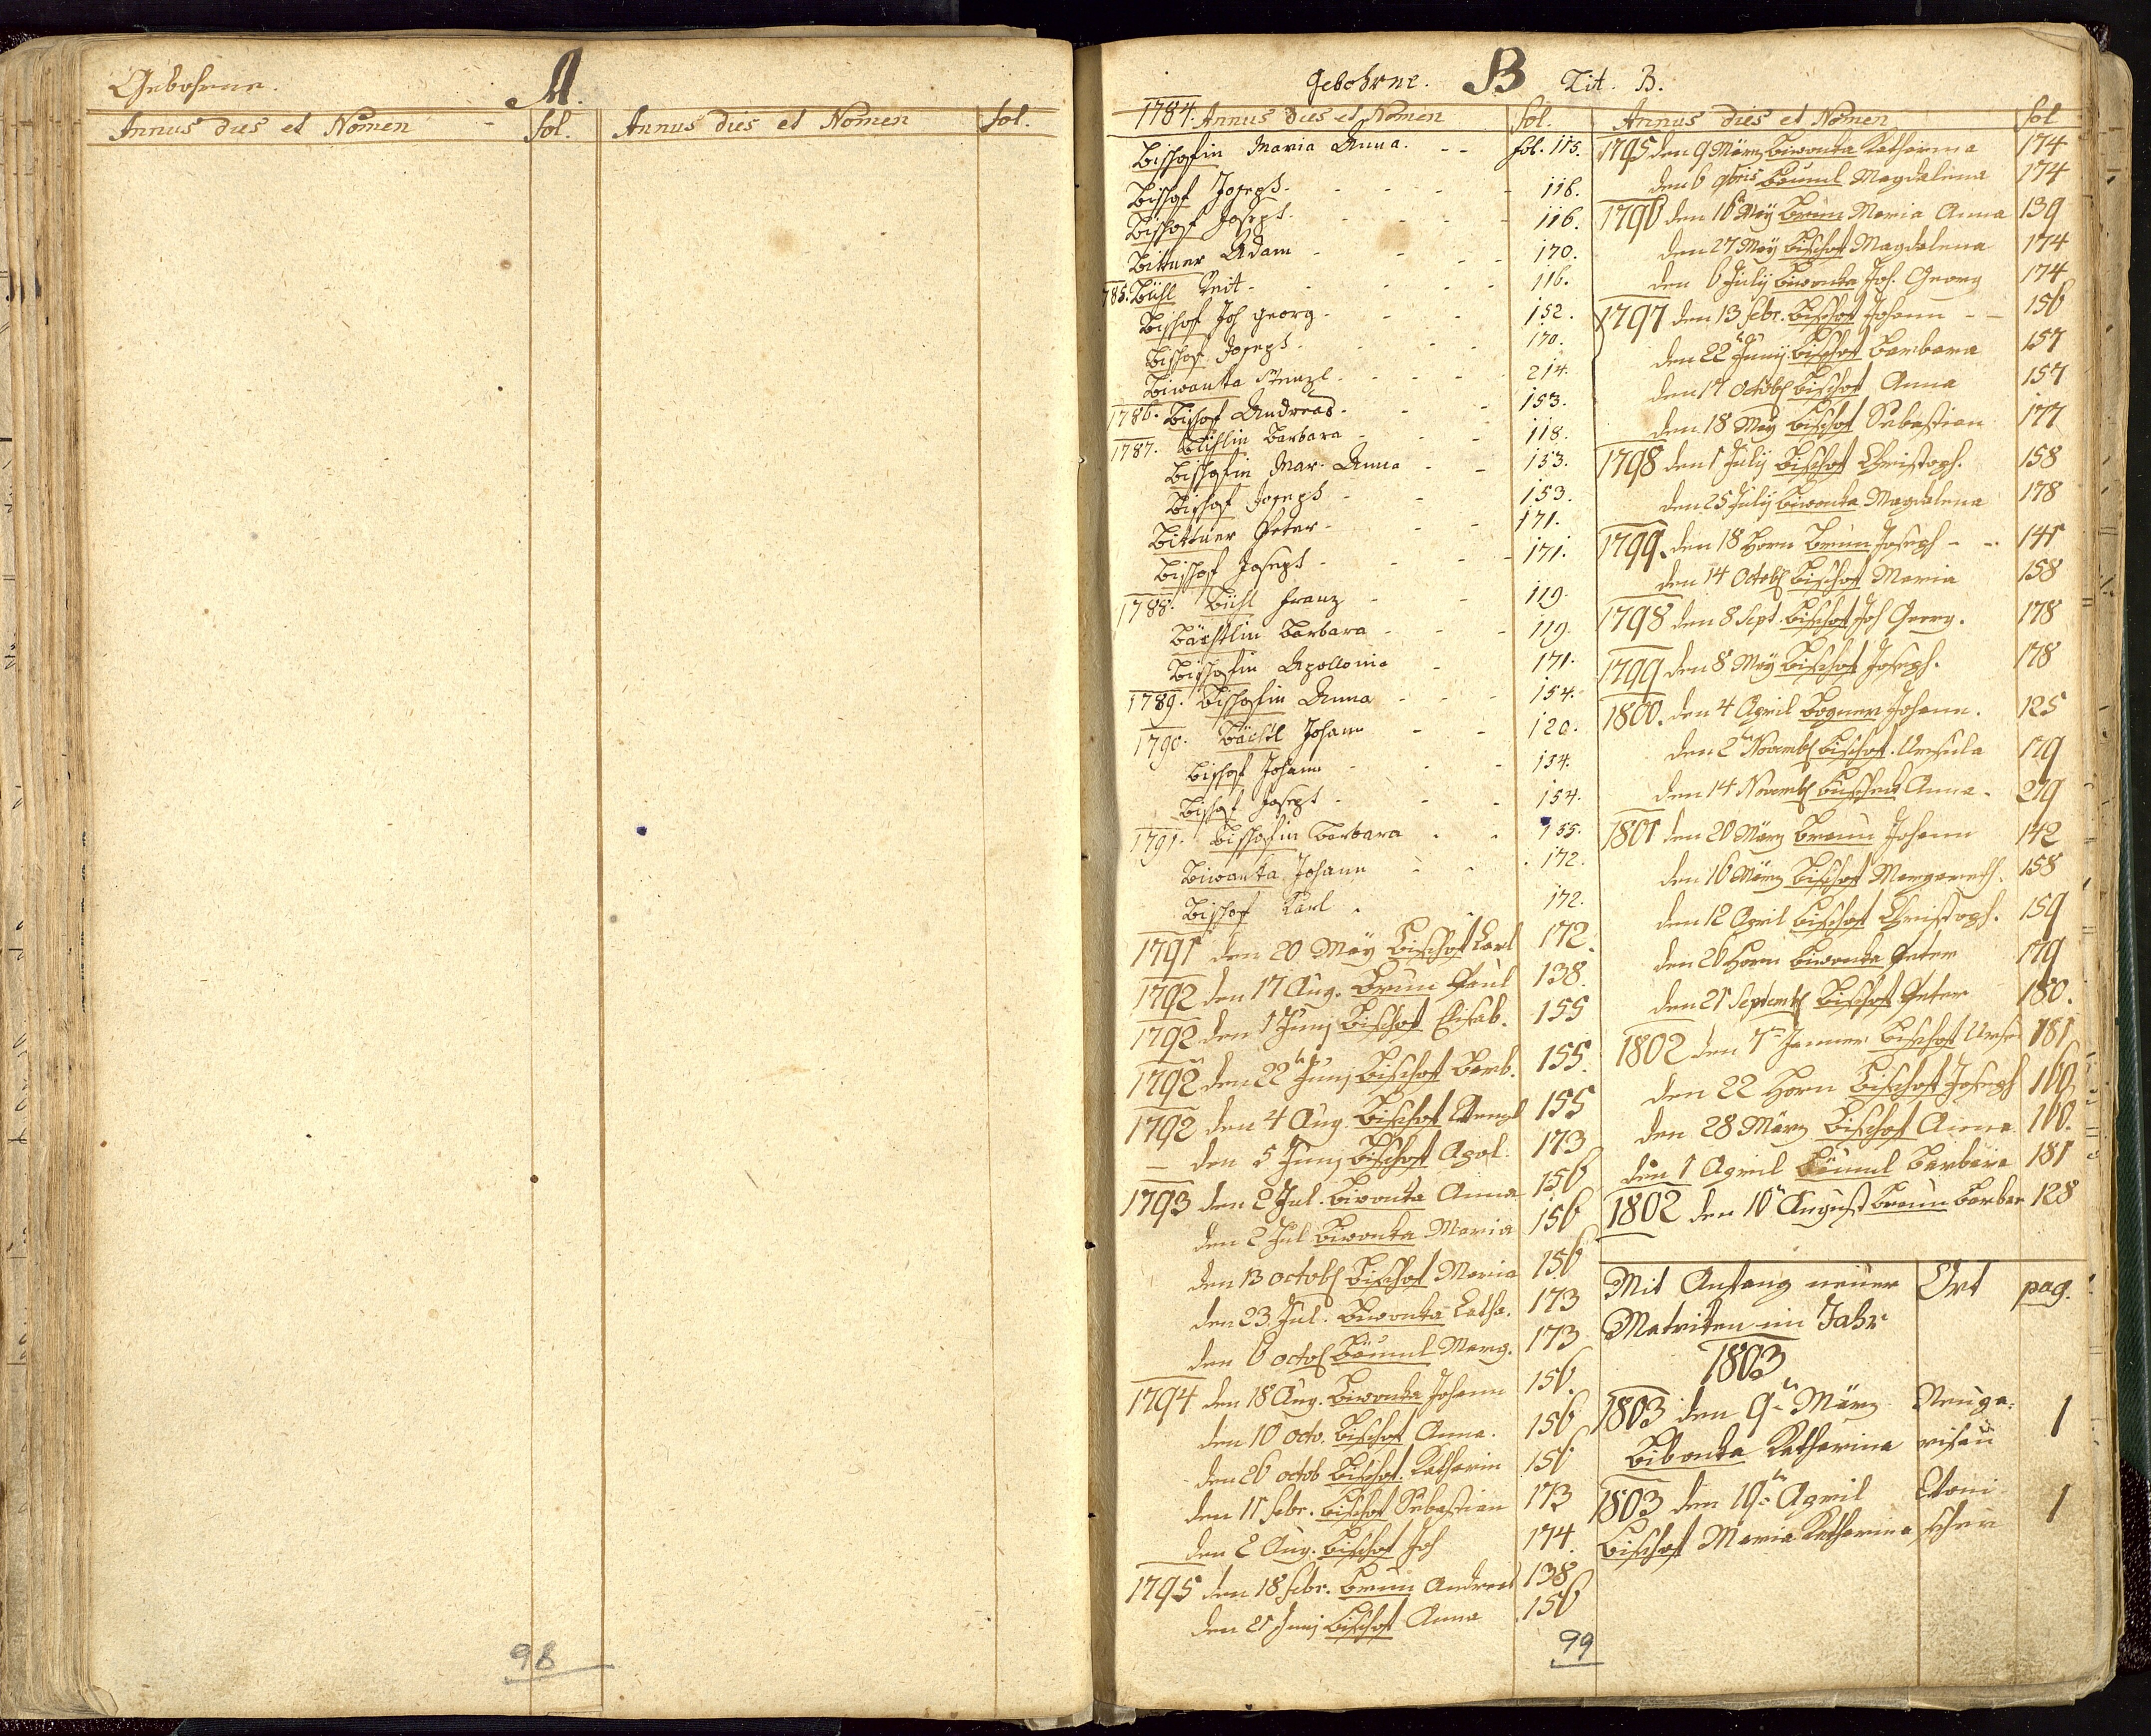 Gebohrne. A.
Annus dies et Nomen fol. Annus dies et Nomen fol.
98
Gebohrne. B Lit. B.
1784. Annus dies et Nomen fol.
Bischofin Maria Anna. - - fol. 115.
Bischof Joseph. - - - - 116.
Bischof Joseph. - - - - 116.
Bittner Adam - - - - 170.
785. Bühl Veit - - - - 116.
Bischof Joh Georg - - - 152.
Bischof Joseph - - - - 170.
Biwanka - - - - 214.
1786. Bischof Andreas - - - 153.
1787. Bühlin Barbara - - - 118.
Bischofin Mar. Anna - - 153.
Bischof Joseph - - 153.
Bittner Peter - - - 171.
Bischof Joseph - - - - 171.
1788. Bühl Franz - - 119.
Bächtlin Barbara - - - 119.
Bischofin Apollonia - 171.
1789. Bischofin Anna - - - 154.
1790. Bächtl Johann - - 120.
Bischof Johann - - - 154.
Bischof Joseph - - - 154.
1791. Bischofin Barbara - - 155.
Biwanka Johann - - 172.
Bischof Karl . 172.
1791 den 20 May Bischof Karl 172.
1792 den 17 Aug. Brun Paul 138.
1792 den 1 Junj Bischof Elisab. 155
1792 den 22n Junj Bischof Barb. 155.
1792 den 4 Aug. Bischof Wenzl 155
— den 5 Junj Bischof Apol. 173
1793 den 2 Jul. Biwonka Anna 156
den 2 Jul Biwonka Maria 156
den 13 octob Bischof Maria 156
den 23. Jul. Biwonka Katha. 173
den 6 octob Bäuml Marg. 173
1794 den 18 Aug. Biwonka Johann 156.
den 10 octo. Bischof Anna. 156
den 26 octob Bischof. Katharin 156
den 11 febr. Bischof Sebastian 173
den 2 Aug. Bischof Joh 174.
1795 den 18 febr. Brun Andreas 138
den 21 Junj Bischof Anna 156
99
Annus dies et Nomen fol
1795 den 9 März Biwonka Katharina 174
den 6 9bris Bäuml Magdalena 174
1796 den 16 May Brun Maria Anna 139
den 27 May Bischof Magdalena 174
den 6 July Biwonka Joh. Georg 174
1797 den 13 febr. Bischof Johann - - 156
den 22n Junij Bischof Barbara 157
den 17 Octob Bischof Anna 157
den 18 May Bischof Sebastian 177
1798 den 1 July Bischof Christoph. 158
den 25 July Biwonka Magdalena 178
1799. den 18 Horn Brun Joseph - - 141
den 14 Octob Bischof Maria 158
1798 den 8 Sept. Bischof Joh Georg. 178
1799 den 8 May Bischof Joseph. 178
1800. den 4 April Bogner Johann. 125
den 2n Novemb Bischof. Ursula 179
den 14 Novemb Anna. 219
1801 den 20 März Braun Johann 142
den 16 März Bischof Margareth. 158
den 12 April Bischof Christoph. 159
den 26 Horn Biwonka Peter 179
den 21 Septemb Bischof Peter 180.
1802 den 7n Jenner Bischof 181
den 22 Horn Bischof Joseph 160
den 28 März Bischof Anna 160.
den 1 April Bäuml Barbara 181
1802 den 10n August Braun Barbar 128
Mit Anfang neuer Ort pag.
Matriken im Jahr
1803
1803 den 9n März Neuge-
Bibonka Katharina risau 1
1803 den 19n April
Bischof Maria Katharina 1